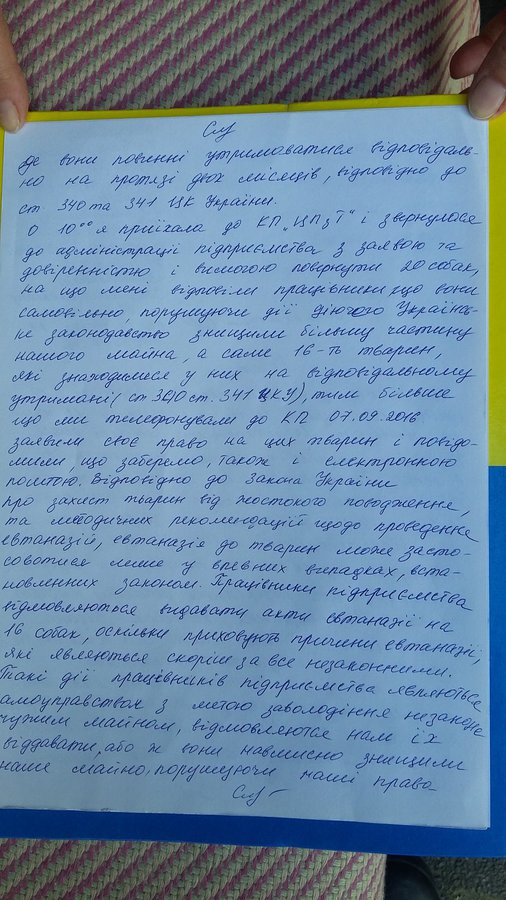 де вони повинні утримоватися відповідаль-
но на протязі двух місяців, відповідно до
ст 340 та 341 ЦК України.
О 10⁰⁰ я приїхала до КП „ЦПзТ" і звернулася
до адміністрації підприємства з заявою та
довіренністью і вимогою повернути 20 собак,
на що мені відповіли працівники, що вони
самовільно, порушуючи дії діючого Українсь-
ке законодавство знищили більшу частину
нашого майна, а саме 16-ть тварин,
які знаходилися у них на відповідальному
утримані (ст 340 ст. 341 ЦКУ), тим більше
що ми телефонували до КП 07.09.2016
заявили своє право на цих тварин і повідо-
мили, що заберемо, також і електронною
поштою. Відповідно до Закона України
про захист тварин від жостокого поводження,
та методичних рекомендацій щодо проведення
евтаназій, евтаназія до тварин може засто-
соватися лише у певних випадках, вста-
новленних законом. Працівники підприємства
відмовляються видавати акти евтаназії на
16 собак, оскільки приховують причени евтаназії,
які являються скоріш за все незаконними.
Такі дії працівників підприємства являються
амоуправством з метою заволодіння незаконно
чужим майном, відмовляются нам їх
віддавати, або ж вони навмисно знищили
наше майно, порушуючи наші права